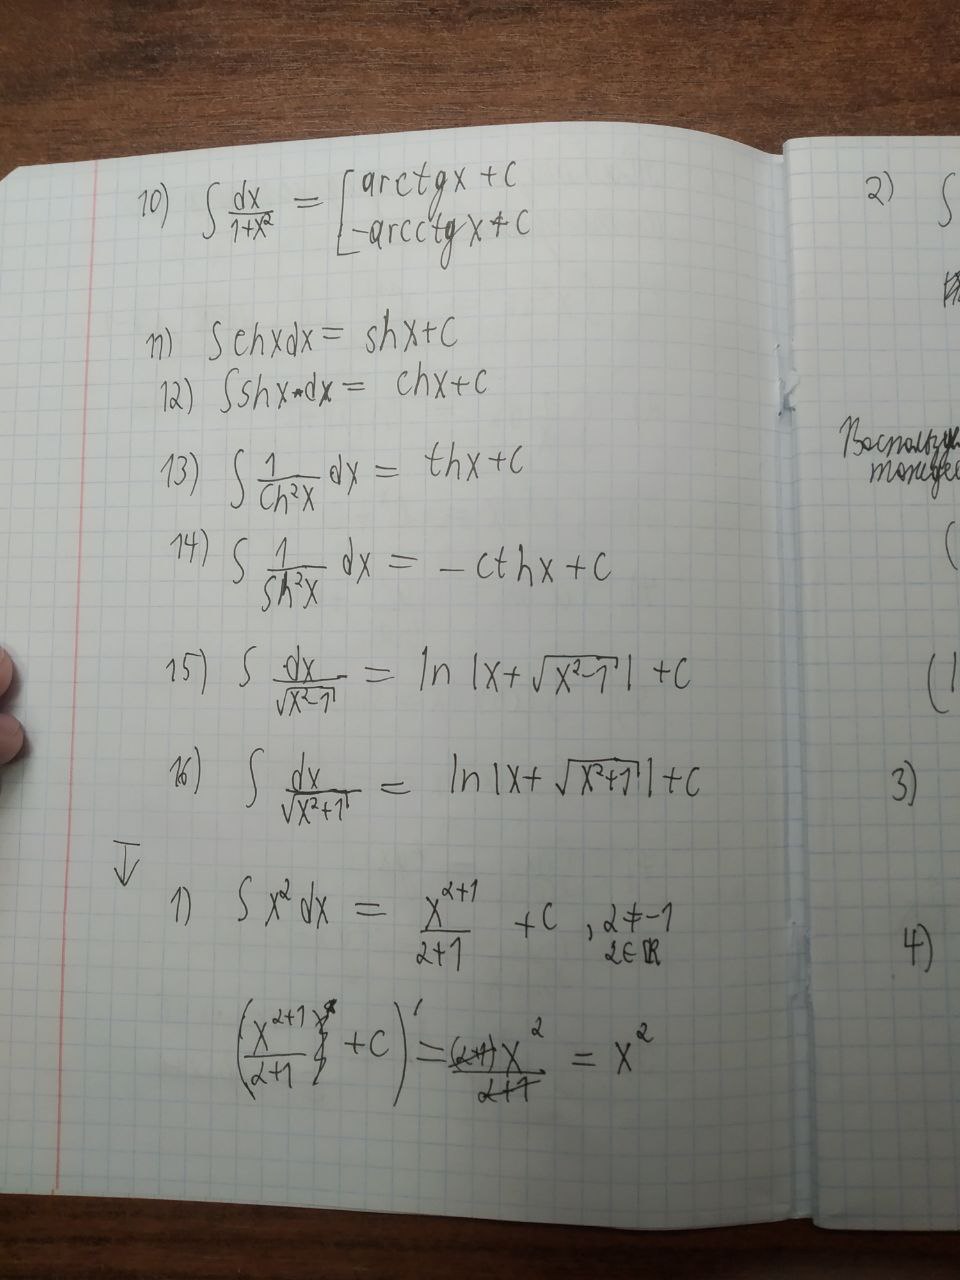 10) ∫ dx/(1+x²) = [ arctgx + C
-arcctgx + C
11) ∫chxdx = shx+C
12) ∫shx·dx = chx+C
13) ∫ 1/(ch²x) dx = thx+C
14) ∫ 1/(sh²x) dx = -cthx+C
15) ∫ dx/√(x²-1) = ln |x+√(x²-1)| + C
16) ∫ dx/√(x²+1) = ln |x+√(x²+1)| + C
↓
1) ∫ x^α dx = x^(α+1)/(α+1) + C, α≠-1
α∈ℝ
(x^(α+1)/(α+1) + C)' = (α+1)x^α/(α+1) = x^α
2) ∫
(
(1
3)
4)